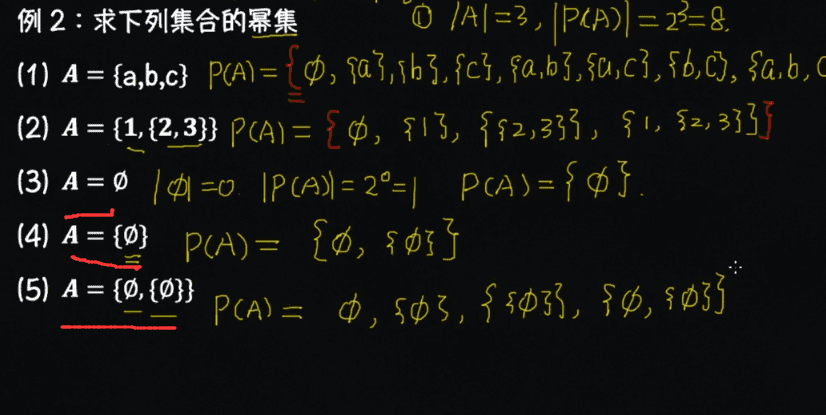 例 2：求下列集合的幂集 ① |A|=3, |P(A)|=2³=8.
(1) A = {a,b,c} P(A)={∅, {a},{b},{c},{a,b},{a,c},{b,c},{a,b,c
(2) A = {1,{2,3}} P(A)={∅, {1}, {{2,3}}, {1, {2,3}}}
(3) A = ∅ |∅|=0. |P(A)|=2⁰=1 P(A)={∅}.
(4) A = {∅} P(A)= {∅, {∅}}
(5) A = {∅,{∅}} P(A)= ∅, {∅}, {{∅}}, {∅, {∅}}